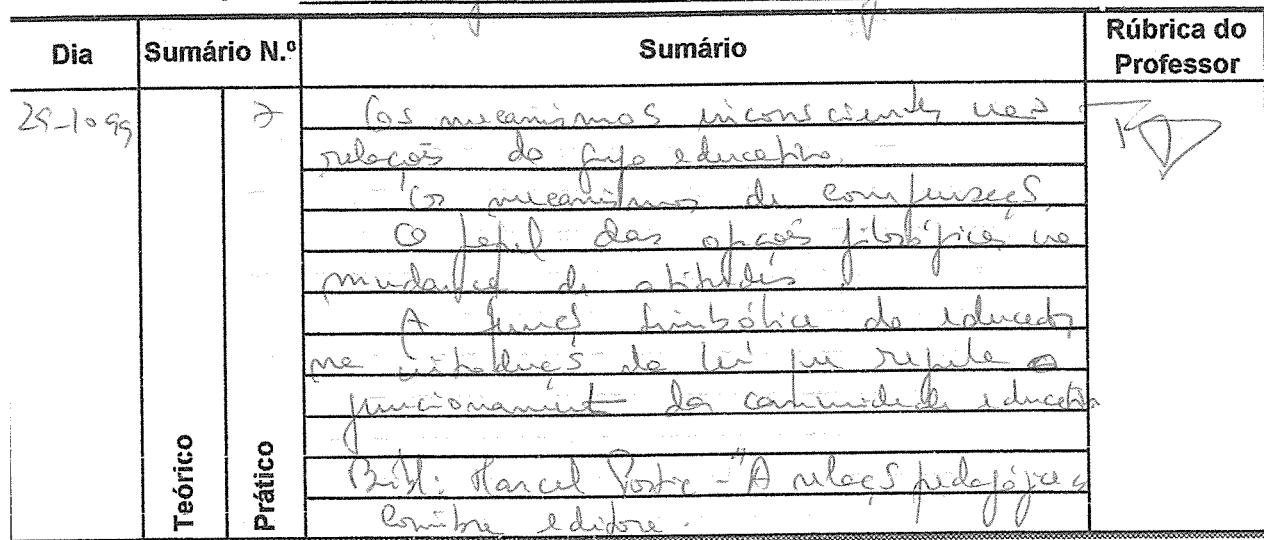 Dia Sumário N.º Sumário Rúbrica do Professor
25-10-99 7 Os mecanismos inconscientes nas
relações do grupo educativo.
Os mecanismos de compensação
O papel das opções filosóficas na
mudança de atitudes.
A função simbólica do educador
na introdução da lei que regula o
funcionamento da comunidade educativa
Teórico Prático
Bibl: Marcel Postic - "A relação pedagógica
Coimbra editora.